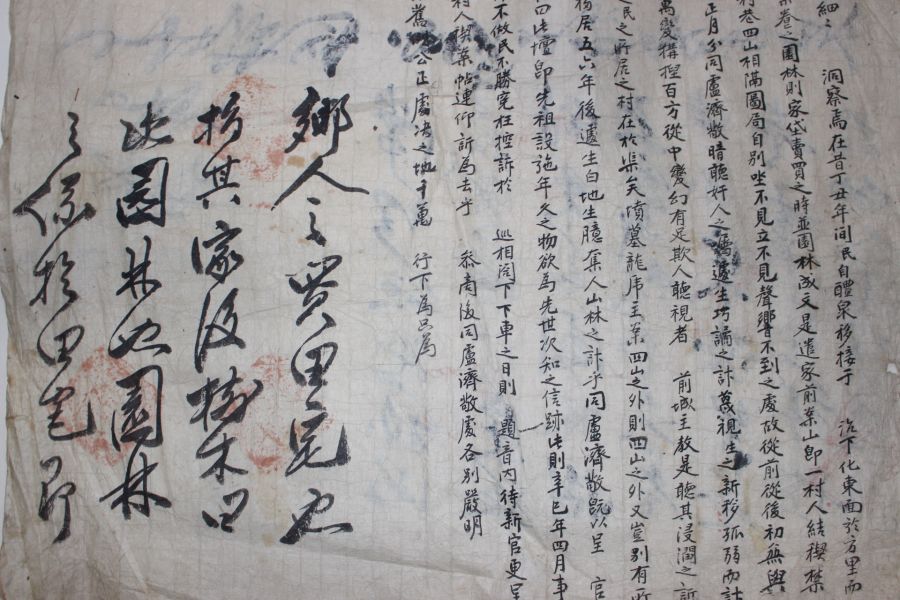 細細
洞察焉在昔丁丑年間民自醴泉移接于 治下化東面於方里而
券之園林則家垈賣買之時並園林成文是遣家前案山卽一村人結稧禁
村巷四山相隔圖局自別坐不見立不見聲響不到之處故從前從後初無與
正月分同盧濟敬暗聽奸人之囑遽生巧譎之計蔑視生之新移孤弱而計
萬變構捏百方從中變幻有足欺人聽視者 前城主敎是聽其浸潤之訴
民之所居之村在於渠矣墳墓龍虎主案四山之外則四山之外又豈別有所
居五六年後遽生白地生臆奪人山林之計乎同盧濟敬旣以呈 官
四比壇卽先祖設施年久之物欲爲先世次知之信跡此則辛巳年四月事
不做民不勝寃枉控訴於 巡相閤下下車之日則 題音內待新官更呈
村人稧案帖連仰訴爲去乎 參商後同盧濟敬處各別嚴明
公正處決之地千萬 行下爲只爲
鄉人之買田宅也
於其家後樹木曰
此園林也園林
之係於田宅卽